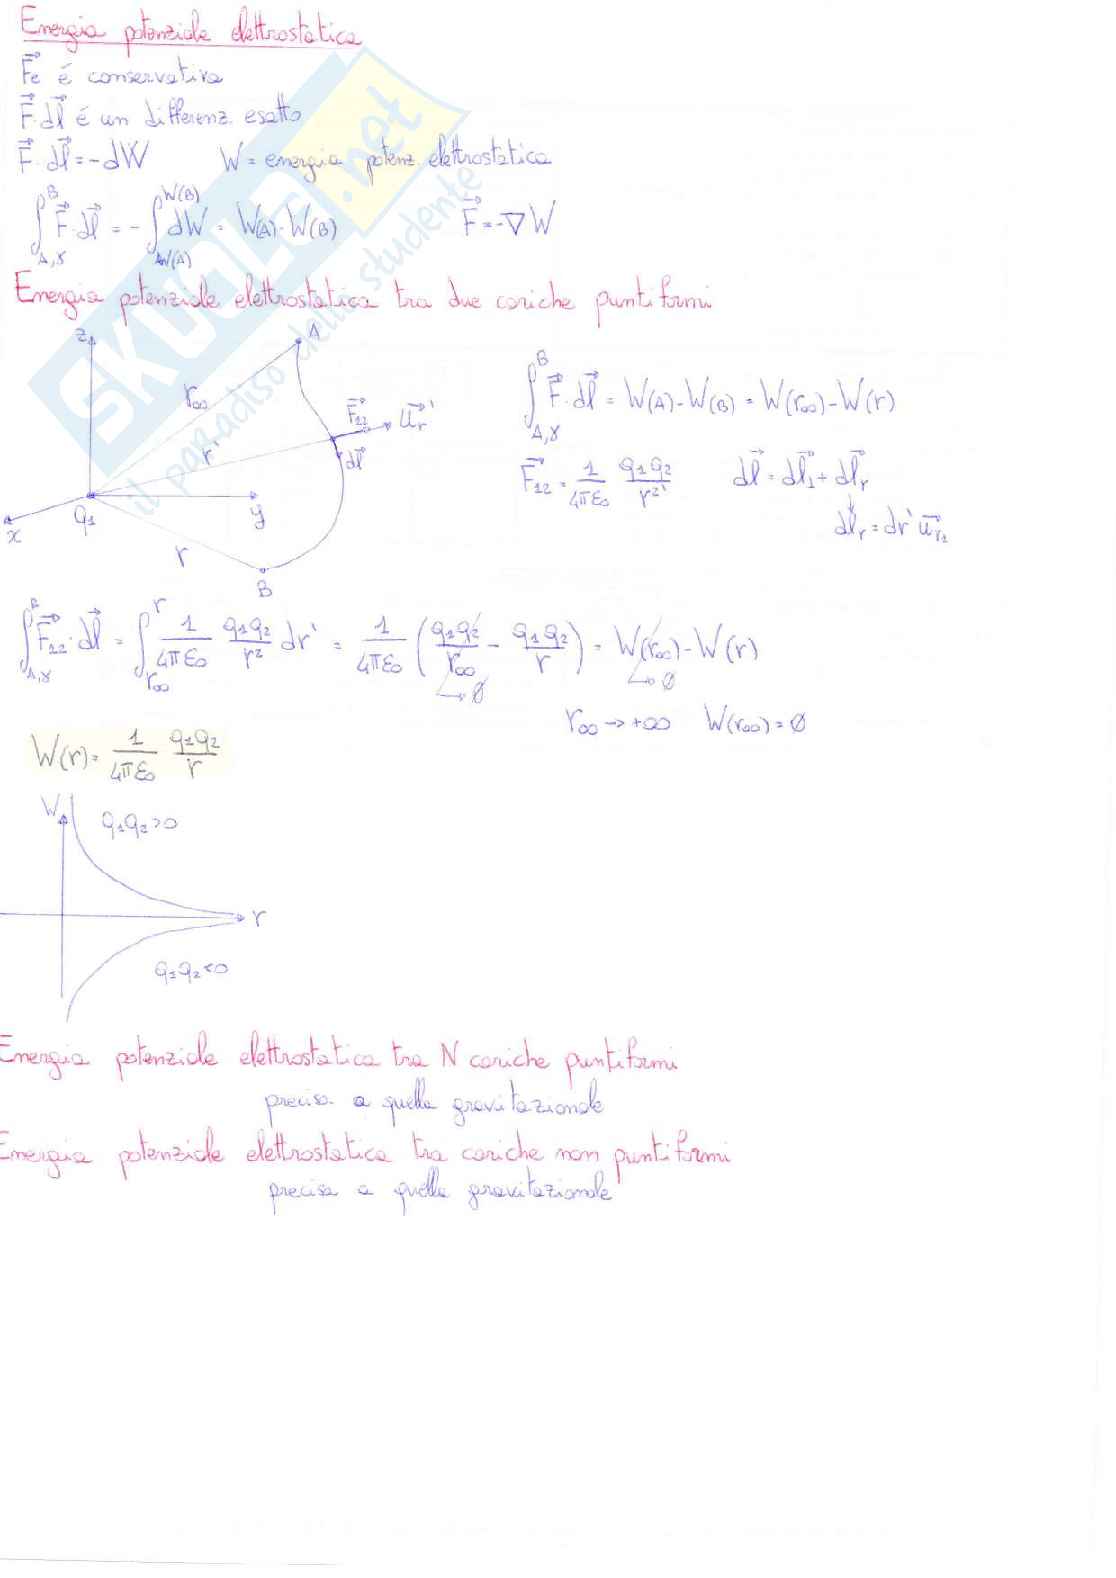 Energia potenziale elettrostatica
F⃗e é conservativa
F⃗·dl⃗ é un differenz. esatto
F⃗·dl⃗ = -dW W = energia potenz. elettrostatica
∫_{A,γ}^{B} F⃗·dl⃗ = -∫_{W(A)}^{W(B)} dW = W(A)-W(B) F⃗ = -∇W
Energia potenziale elettrostatica tra due cariche puntiformi
z A
r∞ F⃗12 u⃗r'
r' dl⃗
q1 y
x r
B
∫_{A,γ}^{B} F⃗·dl⃗ = W(A)-W(B) = W(r∞)-W(r)
F⃗12 = 1/4πε0 q1q2/r²' dl⃗ = dl⃗1 + dl⃗r
dl⃗r = dr' u⃗r1
∫_{A,γ}^{B} F⃗12·dl⃗ = ∫_{r∞}^{r} 1/4πε0 q1q2/r² dr' = 1/4πε0 (q1q2/r∞ - q1q2/r) = W(r∞)-W(r)
→ Ø → Ø
r∞ → +∞ W(r∞) = Ø
W(r) = 1/4πε0 q1q2/r
W q1q2>0
r
q1q2<0
Energia potenziale elettrostatica tra N cariche puntiformi
precisa a quella gravitazionale
Energia potenziale elettrostatica tra cariche non puntiformi
precisa a quella gravitazionale
SKUOLA.net
il paradiso dello studente